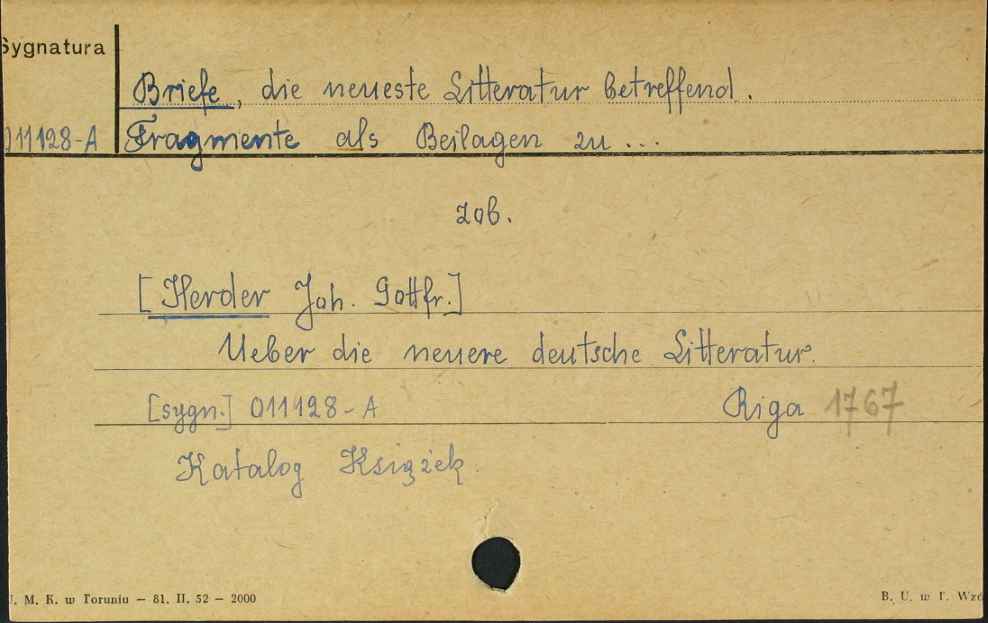 Sygnatura
Briefe, die neueste Litteratur betreffend.
011128-A Fragmente als Beilagen zu ...
zob.
[Herder Joh. Gottfr.]
Ueber die neuere deutsche Litteratur.
[sygn.] 011128-A Riga 1767
Katalog Książek.
U. M. K. w Toruniu — 81. II. 52 — 2000 B. U. w T. Wzó